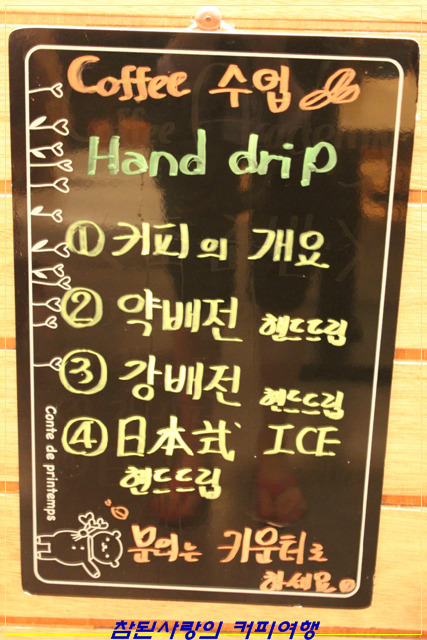 Coffee 수업
Hand drip
① 커피의 개요
② 약배전 핸드드립
③ 강배전 핸드드립
④ 日本式 ICE
핸드드립
Conte de printemps
문의는 카운터로
하세요
참된사랑의 커피여행